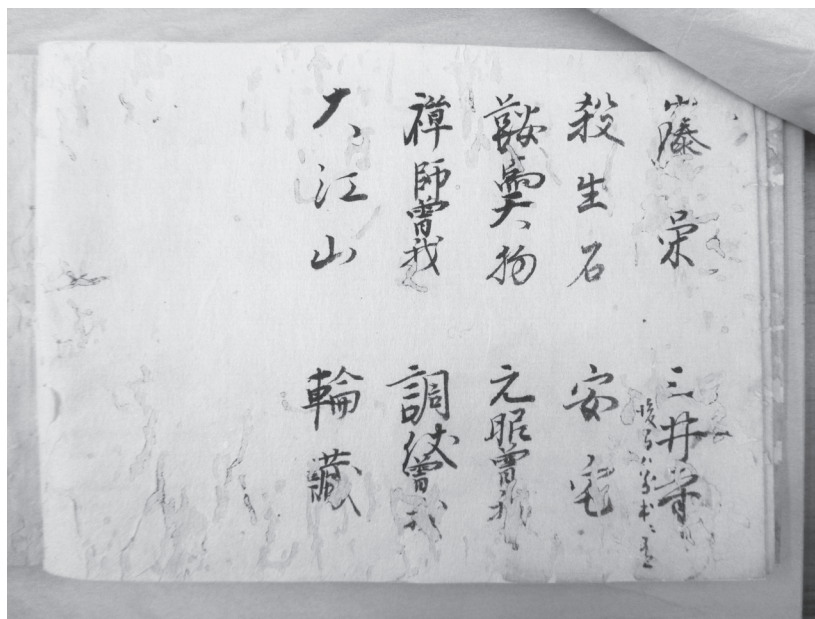 藤栄　三井寺
殺生石　安宅
物　元服曽我
禅師曽我　調伏曽我
大江山　輪蔵